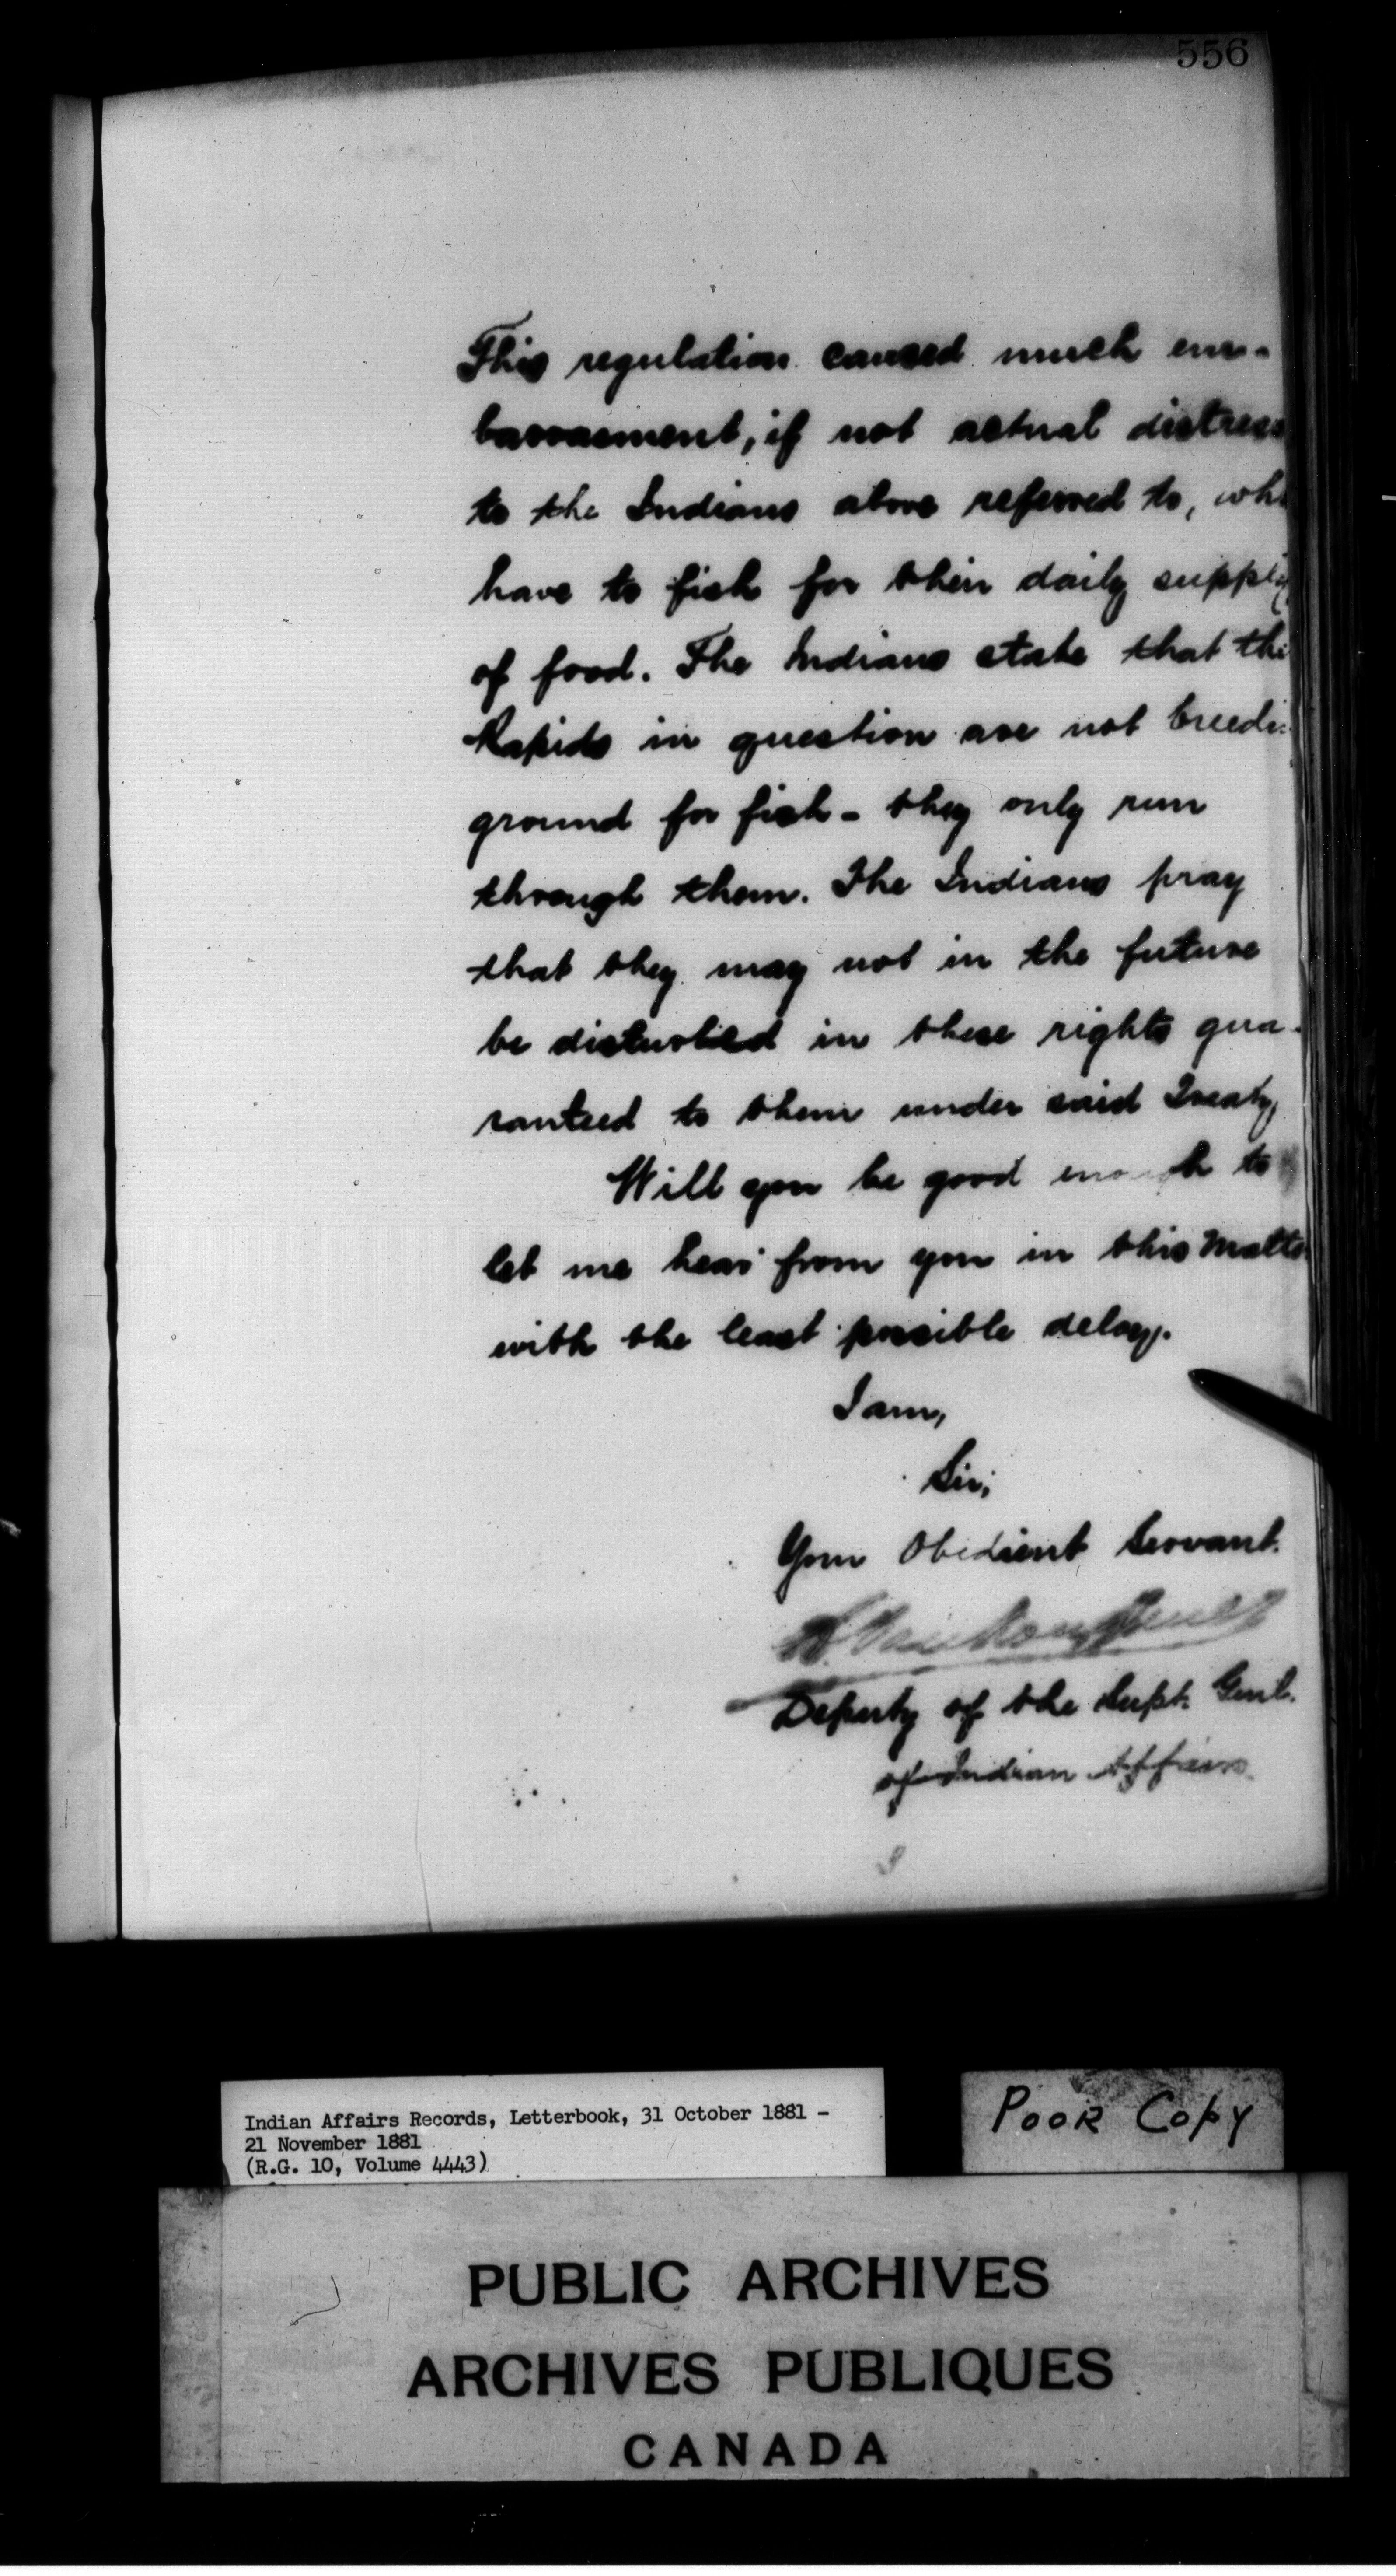 556
This regulation caused much em-
barrasment, if not actual distress
to the Indians above referred to, who
have to fish for their daily supply
of food. The Indians state that the
Rapids in question are not breedin
ground for fish - they only run
through them. The Indians pray
that they may not in the future
be disturbed in these rights gua-
ranteed to them under said Treaty,
Will you be good enough to
let me hear from you in this matter
with the least possible delay.
I am,
Sir,
Your Obedient Servant.
L. VanKoughnet
Deputy of the Supt. Genl.
of Indian Affairs.
Indian Affairs Records, Letterbook, 31 October 1881 -
21 November 1881
(R.G. 10, Volume 4443)
POOR COPY
PUBLIC ARCHIVES
ARCHIVES PUBLIQUES
CANADA